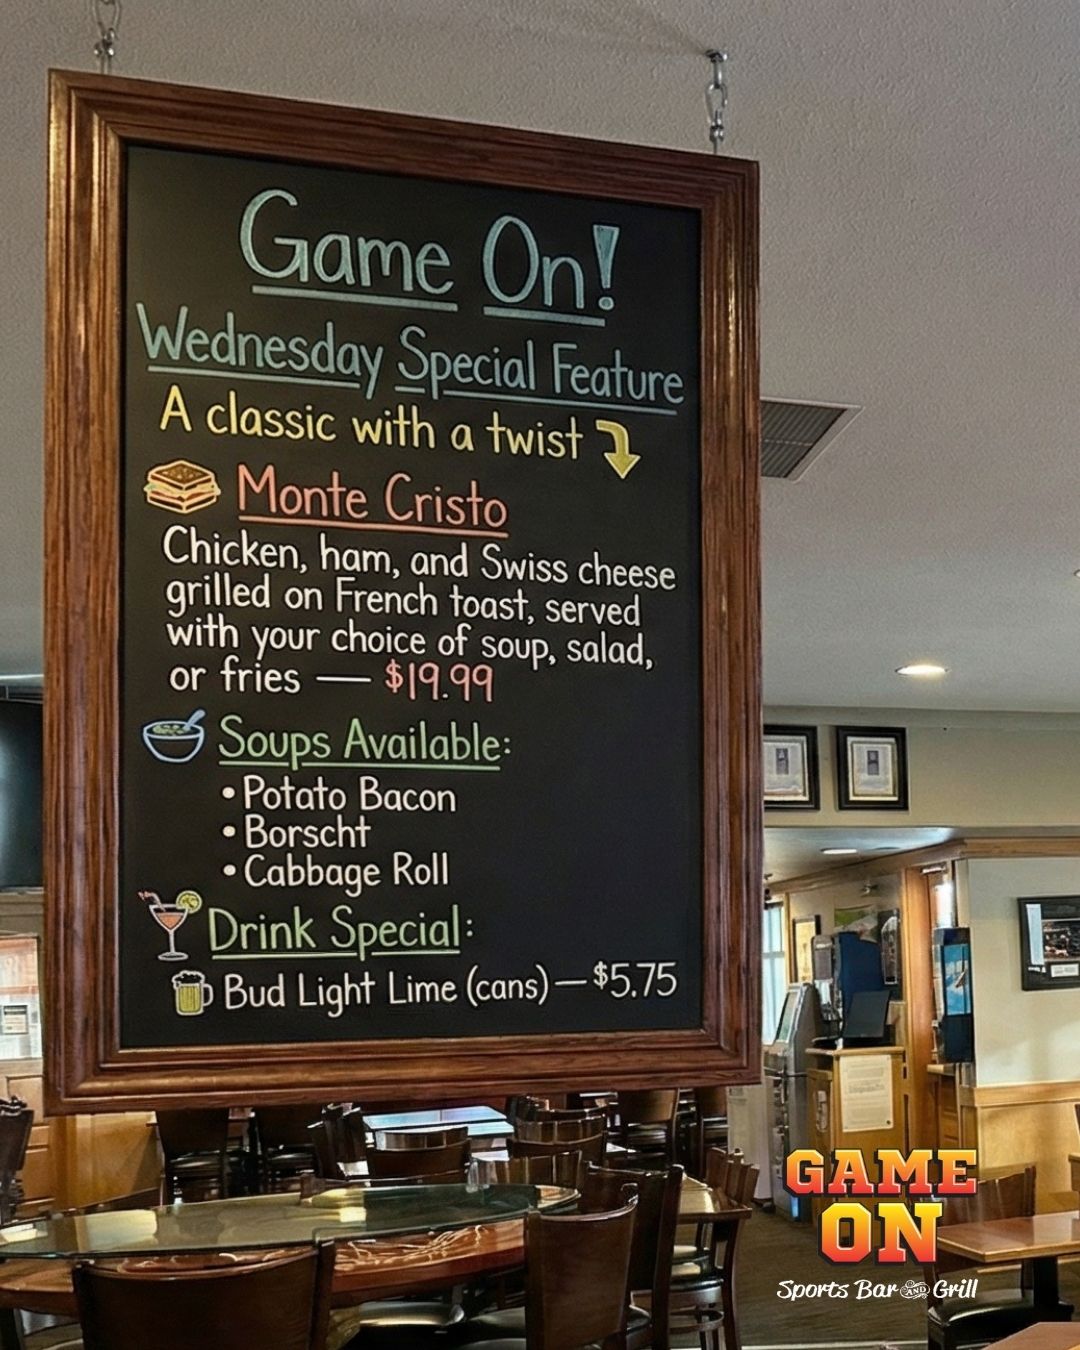 Game On!
Wednesday Special Feature
A classic with a twist
Monte Cristo
Chicken, ham, and Swiss cheese
grilled on French toast, served
with your choice of soup, salad,
or fries — $19.99
Soups Available:
• Potato Bacon
• Borscht
• Cabbage Roll
Drink Special:
Bud Light Lime (cans) — $5.75
GAME
ON
Sports Bar AND Grill